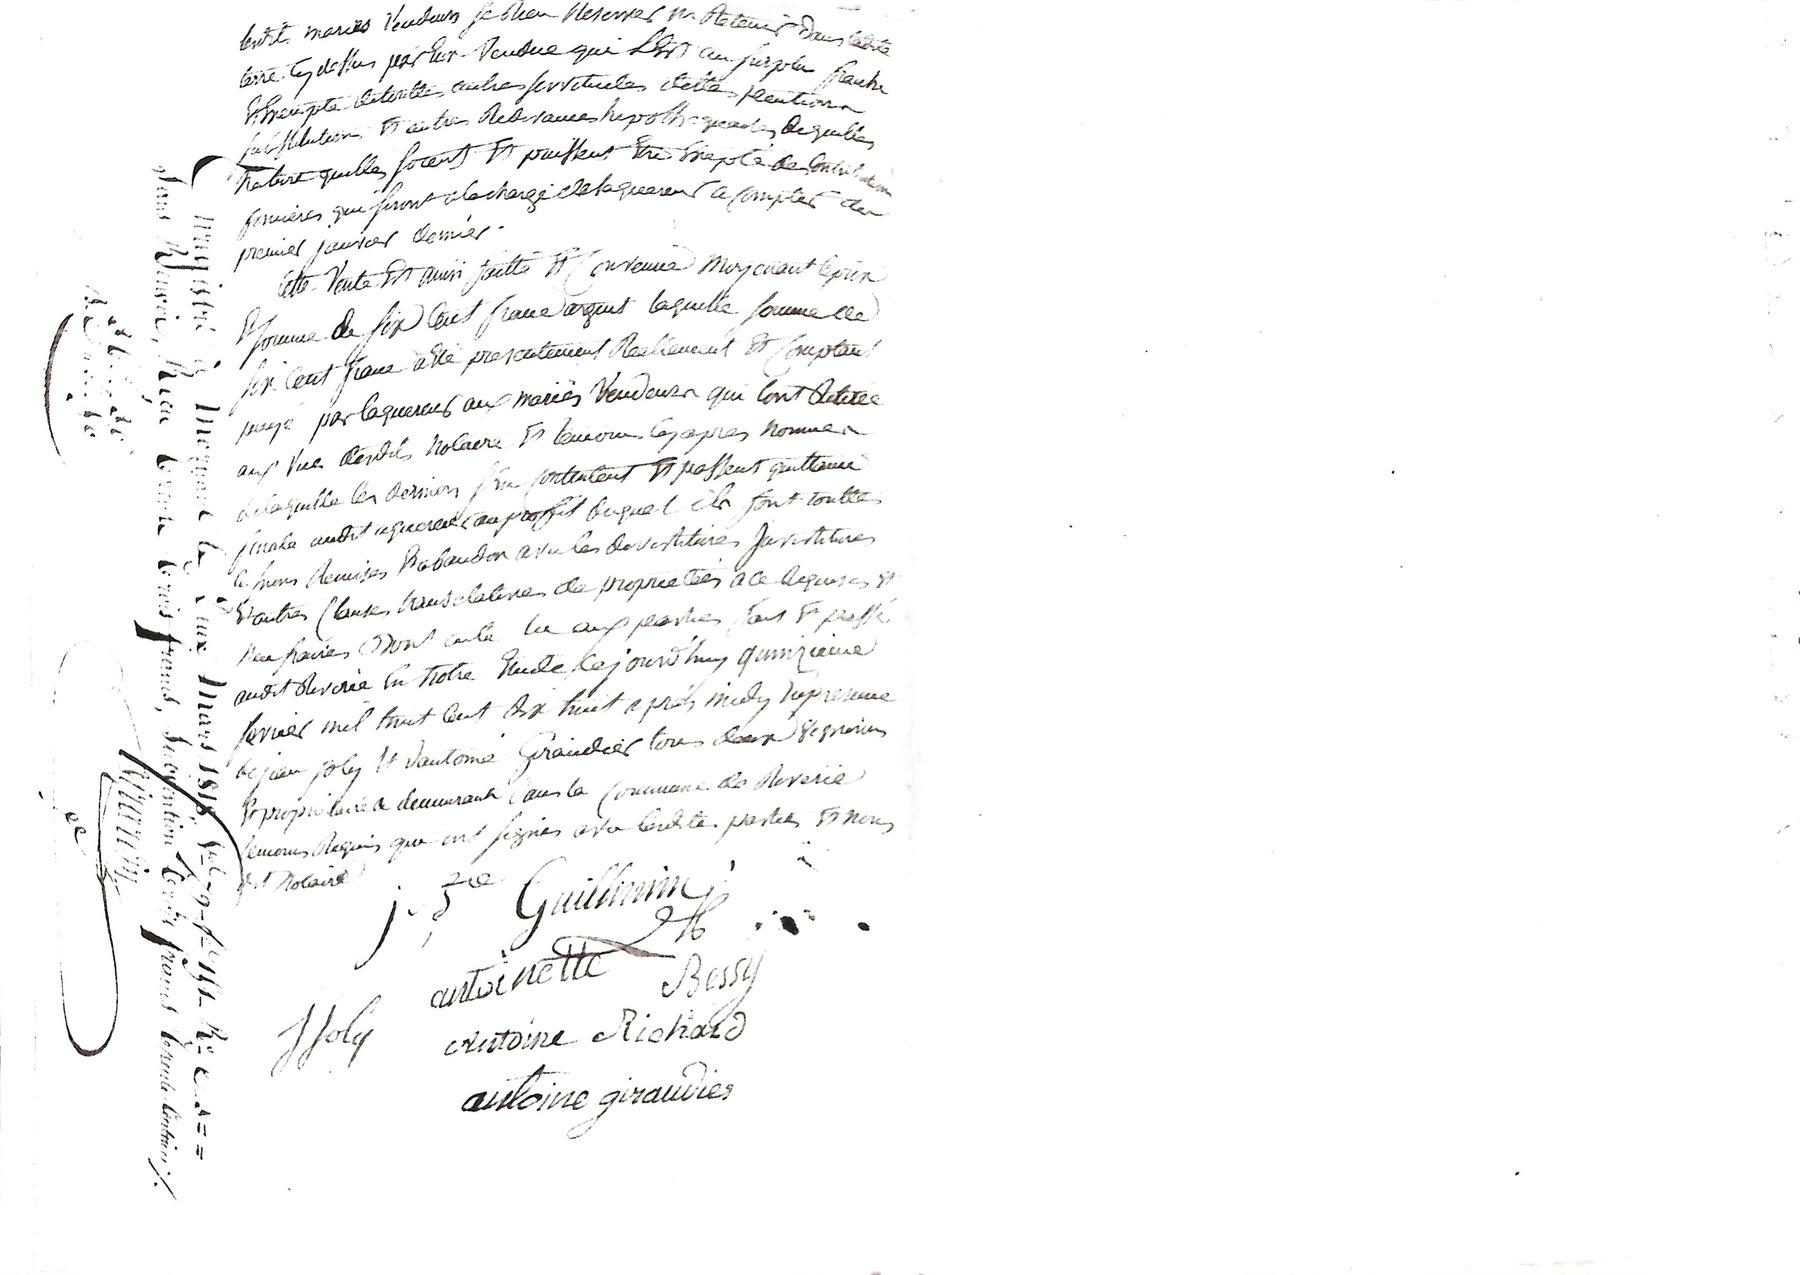 lesdits mariés vendeurs se rien reserver ni retenir dans ladite
terre cy dessus par eux vendue qui est au surplu franche
et exempte de toutte autres servitudes dettes pentions
substitutions et autres redevances hipothequaires de quelles
nature quelles soient et puissent etre excepté des contributions
foncières qui seront a la charge de laquereur a compter du
premier janvier dernier.
cette vente est ainsi faitte et convenue moyenant le prix
et somme de six cent franc argent laquelle somme de
six cent franc a été presentement reellement et comptant
payé par laquereur aux mariés vendeurs qui l'ont retirée
aux vue desdits notaire et temoins cy apres nommés
de laquelle les derniers s'en contentent et passent quittance
finale audit aquereur au proffit duquel ils font touttes
demises et abandon avec les devestitures investitures
et autres clauses translatives de proprietés a ce requises et
necessaires dont acte lu aux parties fait et passé
audit Riverie en notre etude cejourd'huy quinzieme
fevrier mil huit cent dix huit après midy en presence
de jean joly et d'antoine Giraudier tous deux
et propriétaire demeurant dans la commune de Riverie
temoins requis qui ont signés avec lesdites parties et nous
dit notaire
j. Guillimin
antoinette Bessy
J Joly antoine Richard
antoine giraudier
Enregistré à Mornant le six Mars 1818, f° 79
Reçu trente trois francs, subvention trois francs trente centimes